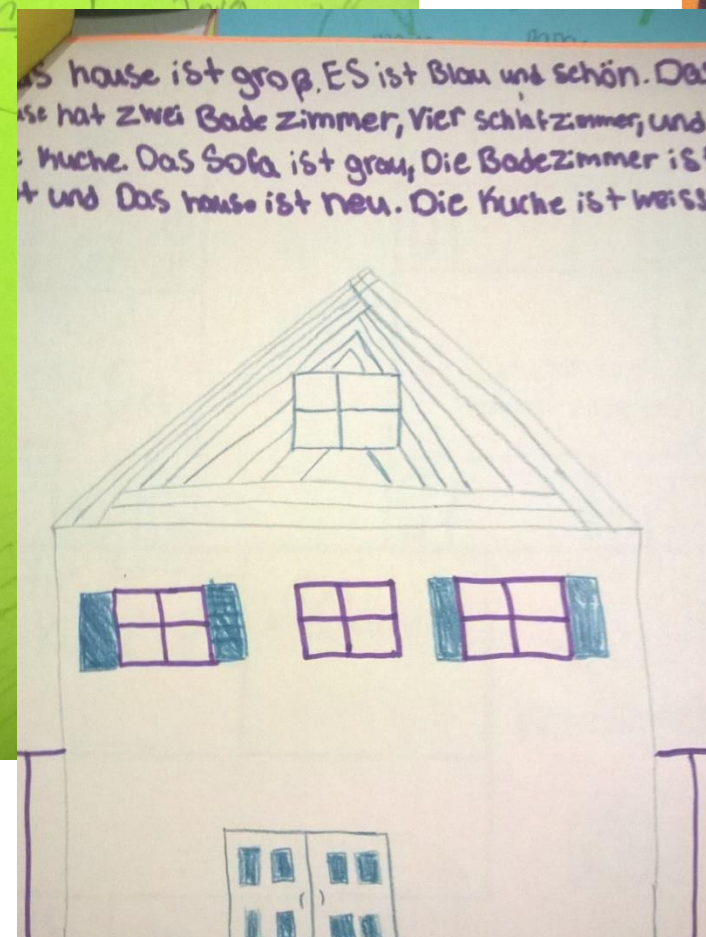 s house ist groß. ES ist Blau und schön. Das
use hat zwei Badezimmer, Vier schlafzimmer, und
Kuche. Das Sofa ist grau, Die Badezimmer ist
und Das house ist neu. Die Kuche ist weiss